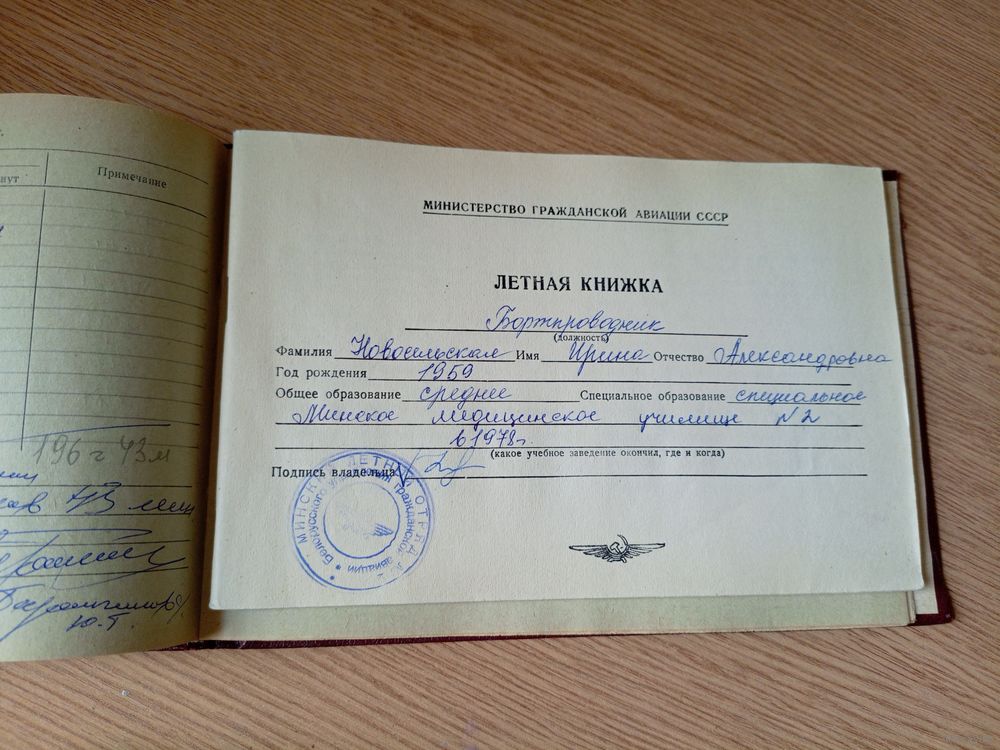 нут
Примечание
196 ч 43 м
43 мин.
Ю.Г.
МИНИСТЕРСТВО ГРАЖДАНСКОЙ АВИАЦИИ СССР
ЛЕТНАЯ КНИЖКА
Бортпроводник
(должность)
Фамилия Новосельская Имя Ирина Отчество Александровна
Год рождения 1959
Общее образование среднее Специальное образование специальное
Минское медицинское училище N2
в 1978г.
(какое учебное заведение окончил, где и когда)
Подпись владельца
МИНСКИЙ ЛЕТНЫЙ ОТРЯД
Белорусского управления гражданской авиации